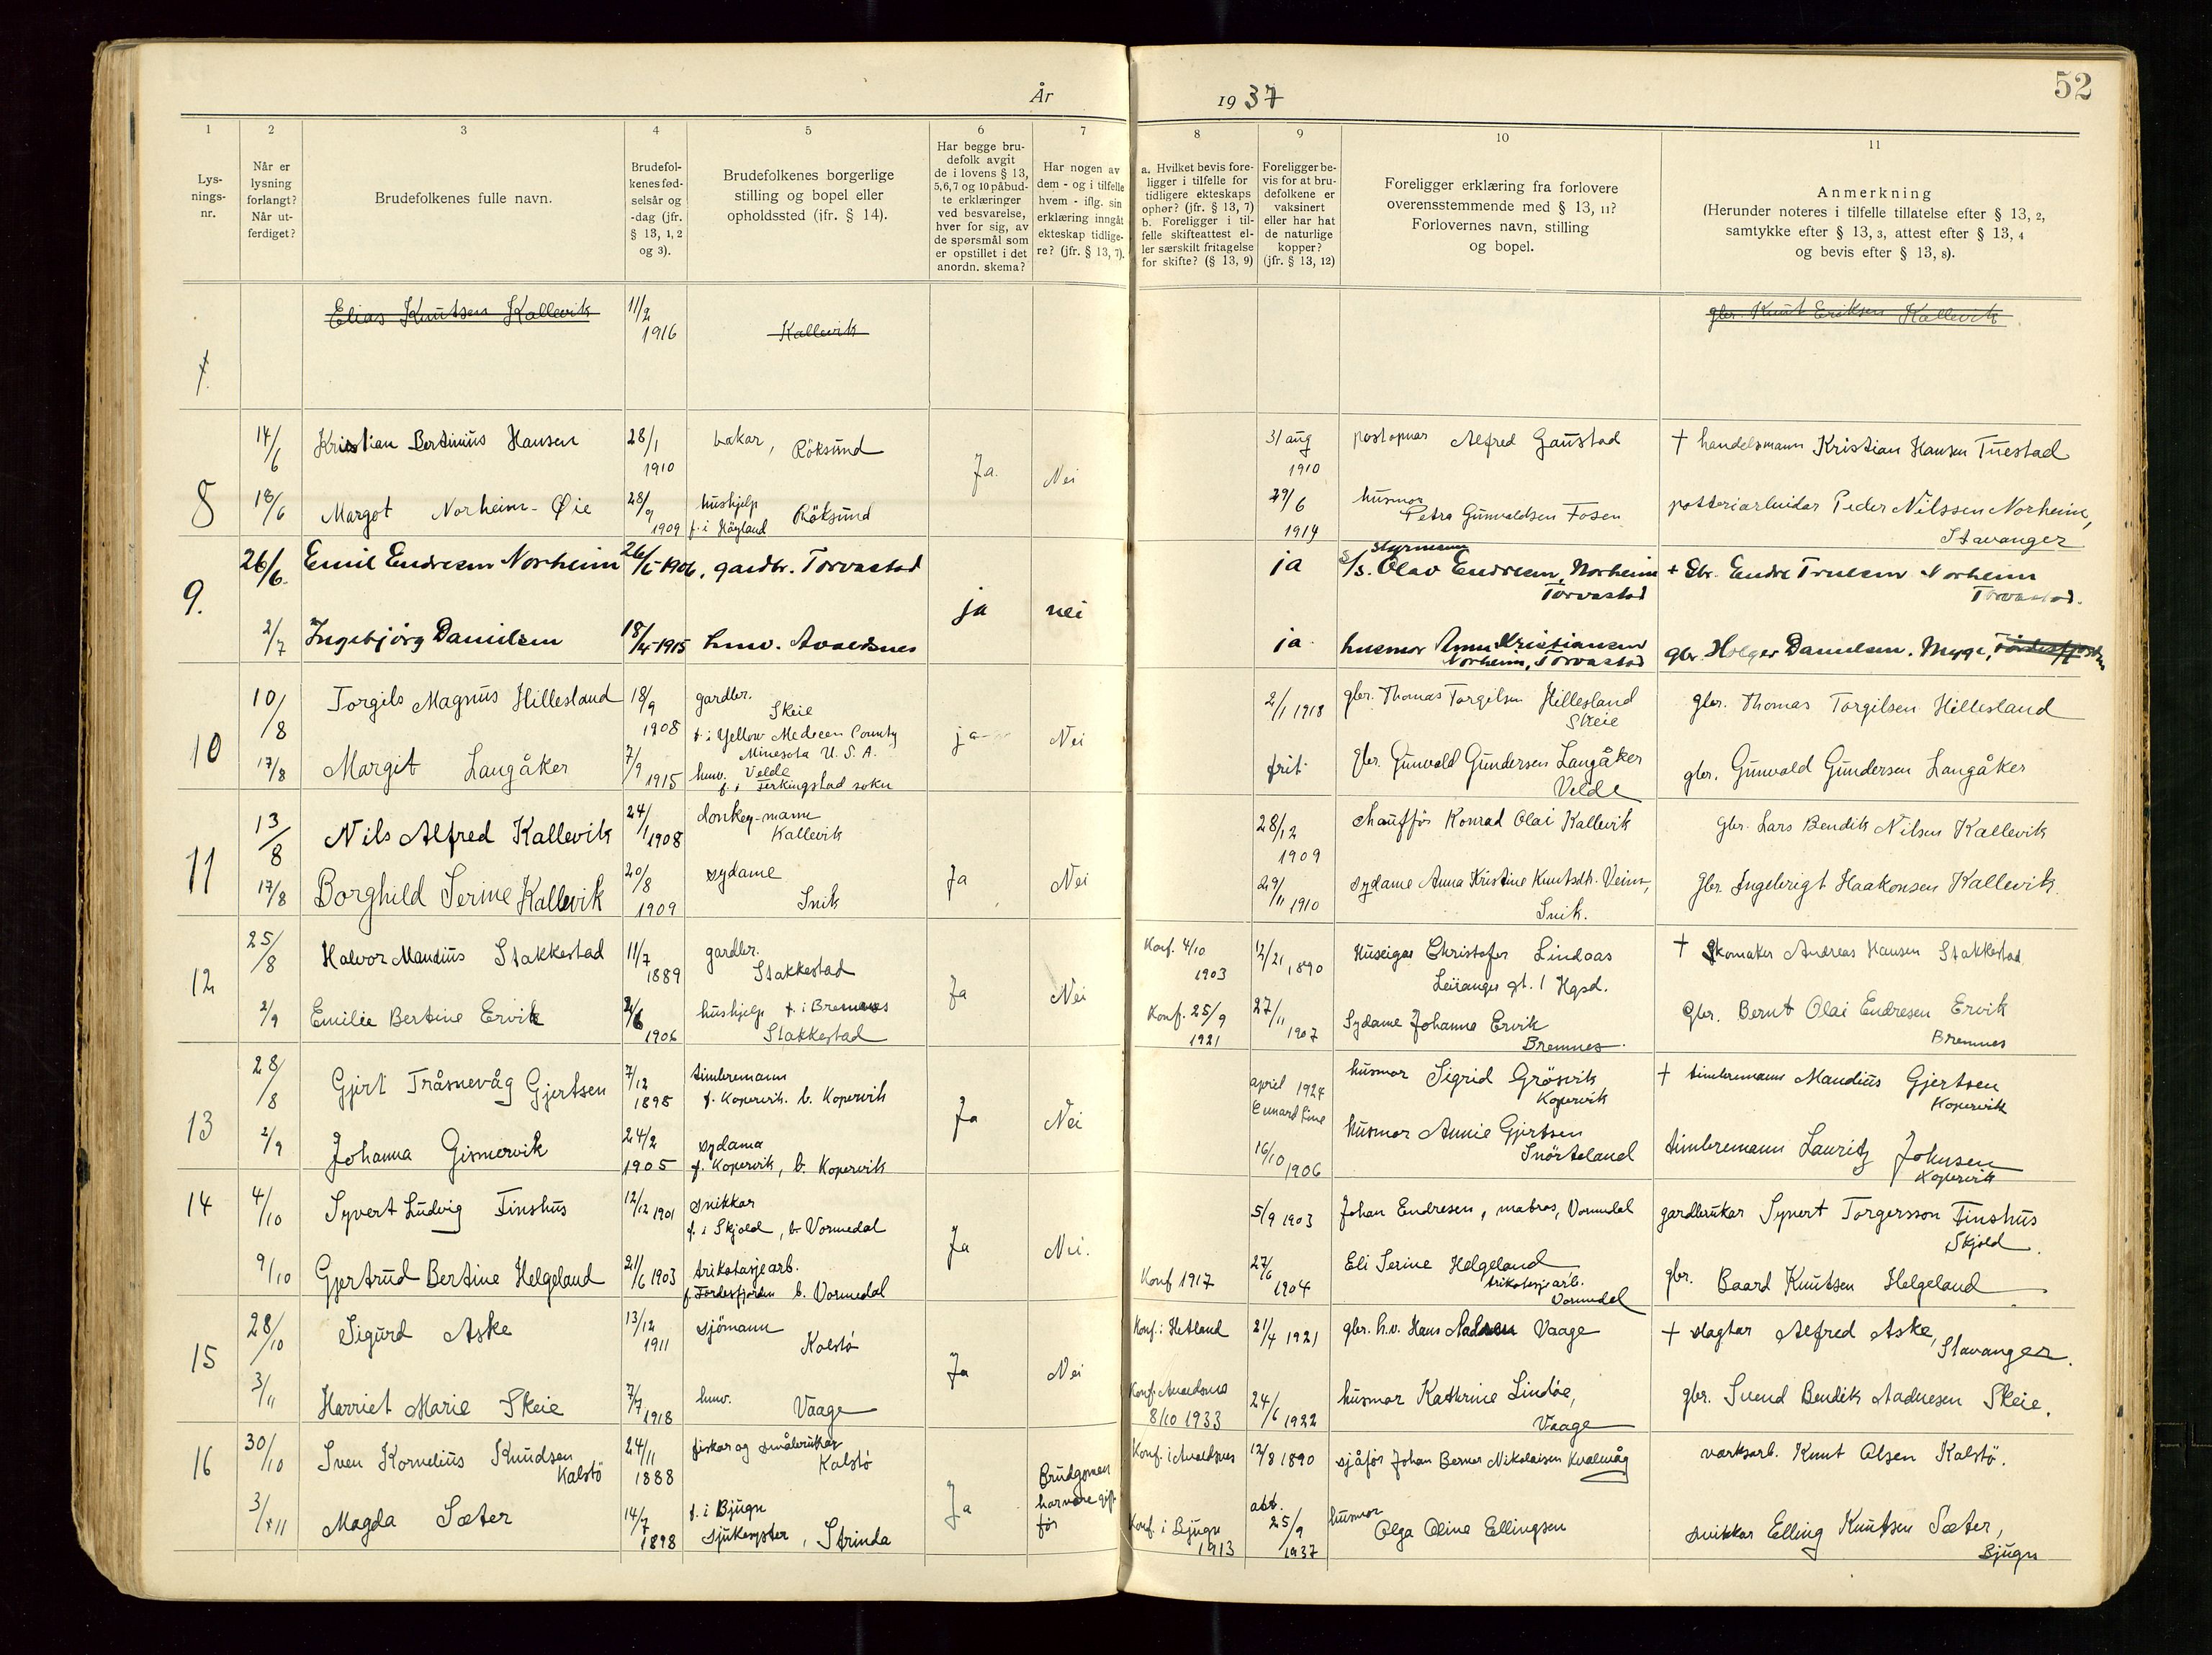 52
År 1937
1 2 3 4 5 6 7 8 9 10 11
Lys-
nings-
nr.
Når er
lysning
forlangt?
Når ut-
ferdiget?
Brudefolkenes fulle navn.
Brudefol-
kenes fød-
selsår og
-dag (jfr.
§ 13, 1, 2
og 3).
Brudefolkenes borgerlige
stilling og bopel eller
opholdssted (jfr. § 14).
Har begge bru-
defolk avgit
de i lovens § 13,
5, 6, 7 og 10 påbud-
te erklæringer
ved besvarelse,
hver for sig, av
de spørsmål som
er opstillet i det
anordn. skema?
Har nogen av
dem - og i tilfelle
hvem - iflg. sin
erklæring inngåt
ekteskap tidlige-
re? (jfr. § 13, 7).
a. Hvilket bevis fore-
ligger i tilfelle for
tidligere ekteskaps
ophør? (jfr. § 13, 7)
b. Foreligger i til-
felle skifteattest el-
ler særskilt fritagelse
for skifte? (§ 13, 9)
Foreligger be-
vis for at bru-
defolkene er
vaksinert
eller har hat
de naturlige
kopper?
(jfr. § 13, 12)
Foreligger erklæring fra forlovere
overensstemmende med § 13, 11?
Forlovernes navn, stilling
og bopel.
Anmerkning
(Herunder noteres i tilfelle tillatelse efter § 13, 2,
samtykke efter § 13, 3, attest efter § 13, 4
og bevis efter § 13, 8).
Elias Knutsen Kallevik 11/2 1916 Kallevik gbr. Knut Eriksen Kallevik
8
14/6 Kristian Bertinius Hansen 28/1 1910 bakar, Röksund Ja. Nei 31 aug 1910 postopnar Alfred Gaustad † handelsmann Kristian Hansen Tuestad
18/6 Margot Norheim-Øie 28/9 1909 hushjelp
f. i Högland Röksund 29/6 1914 husmor
Petra Gunvaldsen Fosen potteriarbeidar Peder Nilssen Norheim,
Stavanger
9.
26/6. Emil Endresen Norheim 26/5-1906. gardbr. Torvastad ja nei ja styrmann
Olav Endresen, Norheim
Torvastad + Gbr. Endre Truelsen Norheim
Torvastad.
2/7 Ingebjörg Danielsen 18/4-1915 hmv. Avaldsnes ja husmor Anna Kristiansen
Norheim, Torvastad gbr. Holger Danielsen. Mygge, Fördesfjorden
10
10/8 Torgils Magnus Hillesland 18/9 1908 gardbr.
Skeie
f. i Yellow Medecen County
Minesota U.S.A. ja Nei 2/1 1918 gbr. Thomas Torgilsen Hillesland
Skeie gbr. Thomas Torgilsen Hillesland
17/8 Margit Langåker 7/9 1915 hmv. Velde
f. i Ferkingstad sokn frit. Gbr. Gunvald Gundersen Langåker
Velde gbr. Gunvald Gundersen Langåker
11
13/8 Nils Alfred Kallevik 24/1 1908 donkey-mann
Kallevik Ja Nei 28/12 1909 chaufför Konrad Olai Kallevik gbr. Lars Bendik Nilsen Kallevik
17/8 Borghild Serine Kallevik 20/8 1909 sydame
Snik 29/11 1910 sydame Anna Kristine Knutsdtr. Veim,
Snik. Gbr. Ingebrigt Haakonsen Kallevik.
12
25/8 Halvor Mandius Stakkestad 11/7 1889 gardbr.
Stakkestad Ja Nei Konf. 4/10
1903 12/21 1890 Huseigar Christofer Lindaas
Leirangr gt. 1 Hgsd. † Skomaker Andreas Hansen Stakkestad
2/9 Emilie Bertine Ervik 2/6 1906 hushjelp f. i Bremnes
Stakkestad Konf. 25/9
1921 27/11 1907 Sydame Johanna Ervik
Bremnes. Gbr. Bernt Olai Endresen Ervik
Bremnes
13
28/8 Gjert Tråsnevåg Gjertsen 7/12 1895 timbremann
f. Kopervik. b. Kopervik Ja Nei april 1924
Cunard Line husmor Sigrid Grösvik
Kopervik † timbremann Mandius Gjertsen
Kopervik
2/9 Johanna Gismervik 24/2 1905 sydama
f. Kopervik, b. Kopervik 16/10 1906 husmor Annie Gjertsen
Snörteland timbremann Lauritz Johnsen
Kopervik
14
4/10 Syvert Ludvig Finshus 12/12 1901 snikkar
f. i Skjold, b. Vormedal Ja Nei. 5/9 1903 Johan Endresen, matros, Vormedal gardbrukar Syvert Torgersson Finshus
Skjold.
9/10 Gjertrud Bertine Helgeland 21/6 1903 trikotasjearb.
f. Fördesfjorden b. Vormedal Konf 1917 27/6 1904 Eli Serine Helgeland
trikotasjearb.
Vormedal gbr. Baard Knutsen Helgeland
15
28/10 Sigurd Aske 13/12 1911 sjömann
Kolstö Ja Nei Konf. i Hetland 21/4 1921 gbr. h.v. Hans Vaage † slagtar Alfred Aske,
Stavanger.
3/11 Harriet Marie Skeie 7/7 1918 hmv. Vaage Konf. Avaldsnes
8/10 1933 24/6 1922 husmor Kathrine Lindöe,
Vaage gbr. Svend Bendik Aadnesen Skeie.
16
30/10 Sven Kornelius Knudsen
Kalstö 24/11 1888 fiskar og småbrukar
Kalstö Ja Brudgomen
har vore gift
för Konf. i Avaldsnes 12/8 1890 sjåför Johan Berner Nikolaisen Kvalevåg verksarb. Knut Olsen Kalstö.
3/11 Magda Sæter 14/7 1898 f. i Bjugn
sjukesyster, Strinda Konf. i Bjugn
1913 att.
25/9
1937 husmor
Olga Oline Ellingsen snikkar Elling Knutsen Sæter,
Bjugn